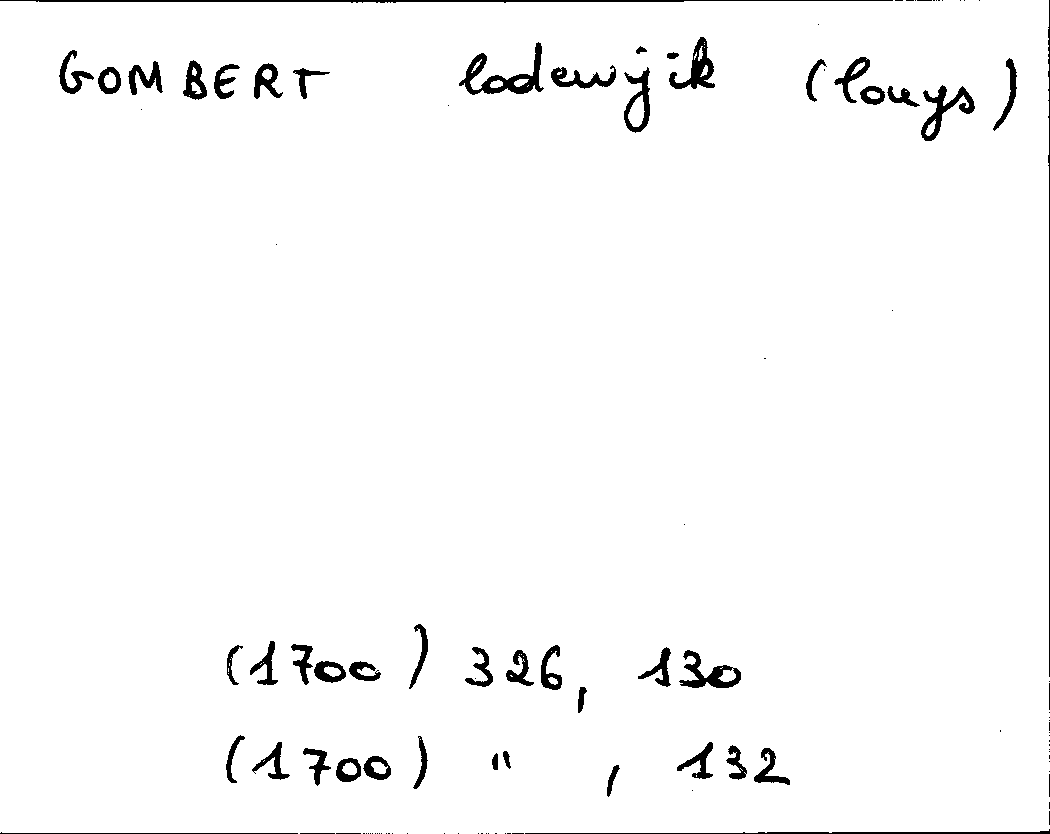 GOMBERT lodewijik (louys)
(1700) 326, 130
(1700) " , 132